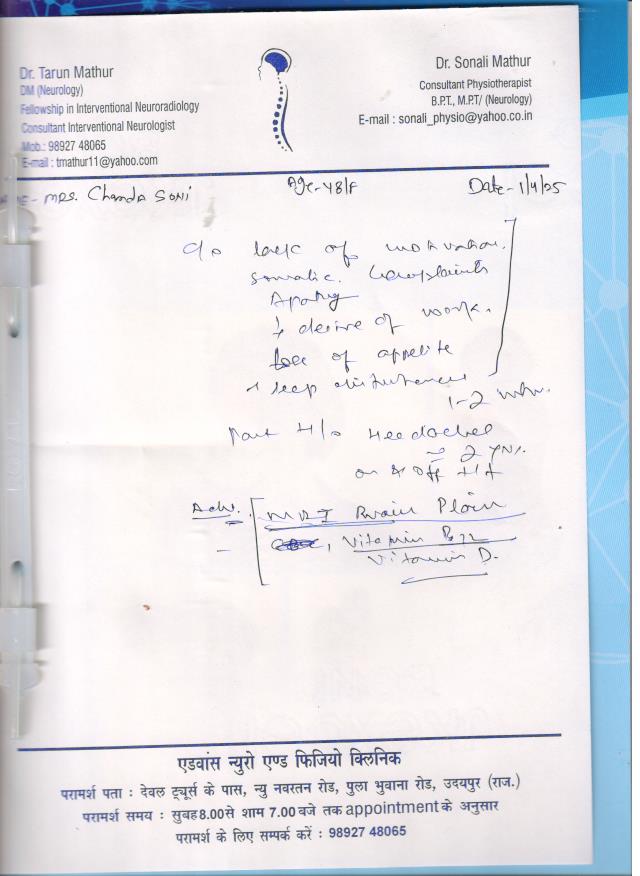 Dr. Tarun Mathur
DM (Neurology)
Fellowship in Interventional Neuroradiology
Consultant Interventional Neurologist
Mob.: 98927 48065
E-mail : tmathur11@yahoo.com
Dr. Sonali Mathur
Consultant Physiotherapist
B.P.T., M.P.T/ (Neurology)
E-mail : sonali_physio@yahoo.co.in
- MRS. Chanda SONI Age-48/F Date-1/4/25
c/o lack of motivation.
Somatic Complaints
Apathy
↓ desire of work.
loss of appetite
sleep disturbances
1-2 mth.
Past H/o Headaches
≈ 2 yrs.
on & off
Adv. MRI Brain Plain
, Vitamin B12
Vitamin D.
एडवांस न्युरो एण्ड फिजियो क्लिनिक
परामर्श पता : देवल ट्यूर्स के पास, न्यु नवरतन रोड, पुला भुवाना रोड, उदयपुर (राज.)
परामर्श समय : सुबह 8.00 से शाम 7.00 बजे तक appointment के अनुसार
परामर्श के लिए सम्पर्क करें : 98927 48065